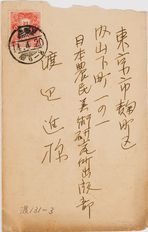 東京市麹町区
内山下町一の一
日本農民美術研究所出版部
渡辺進様
渡131-3